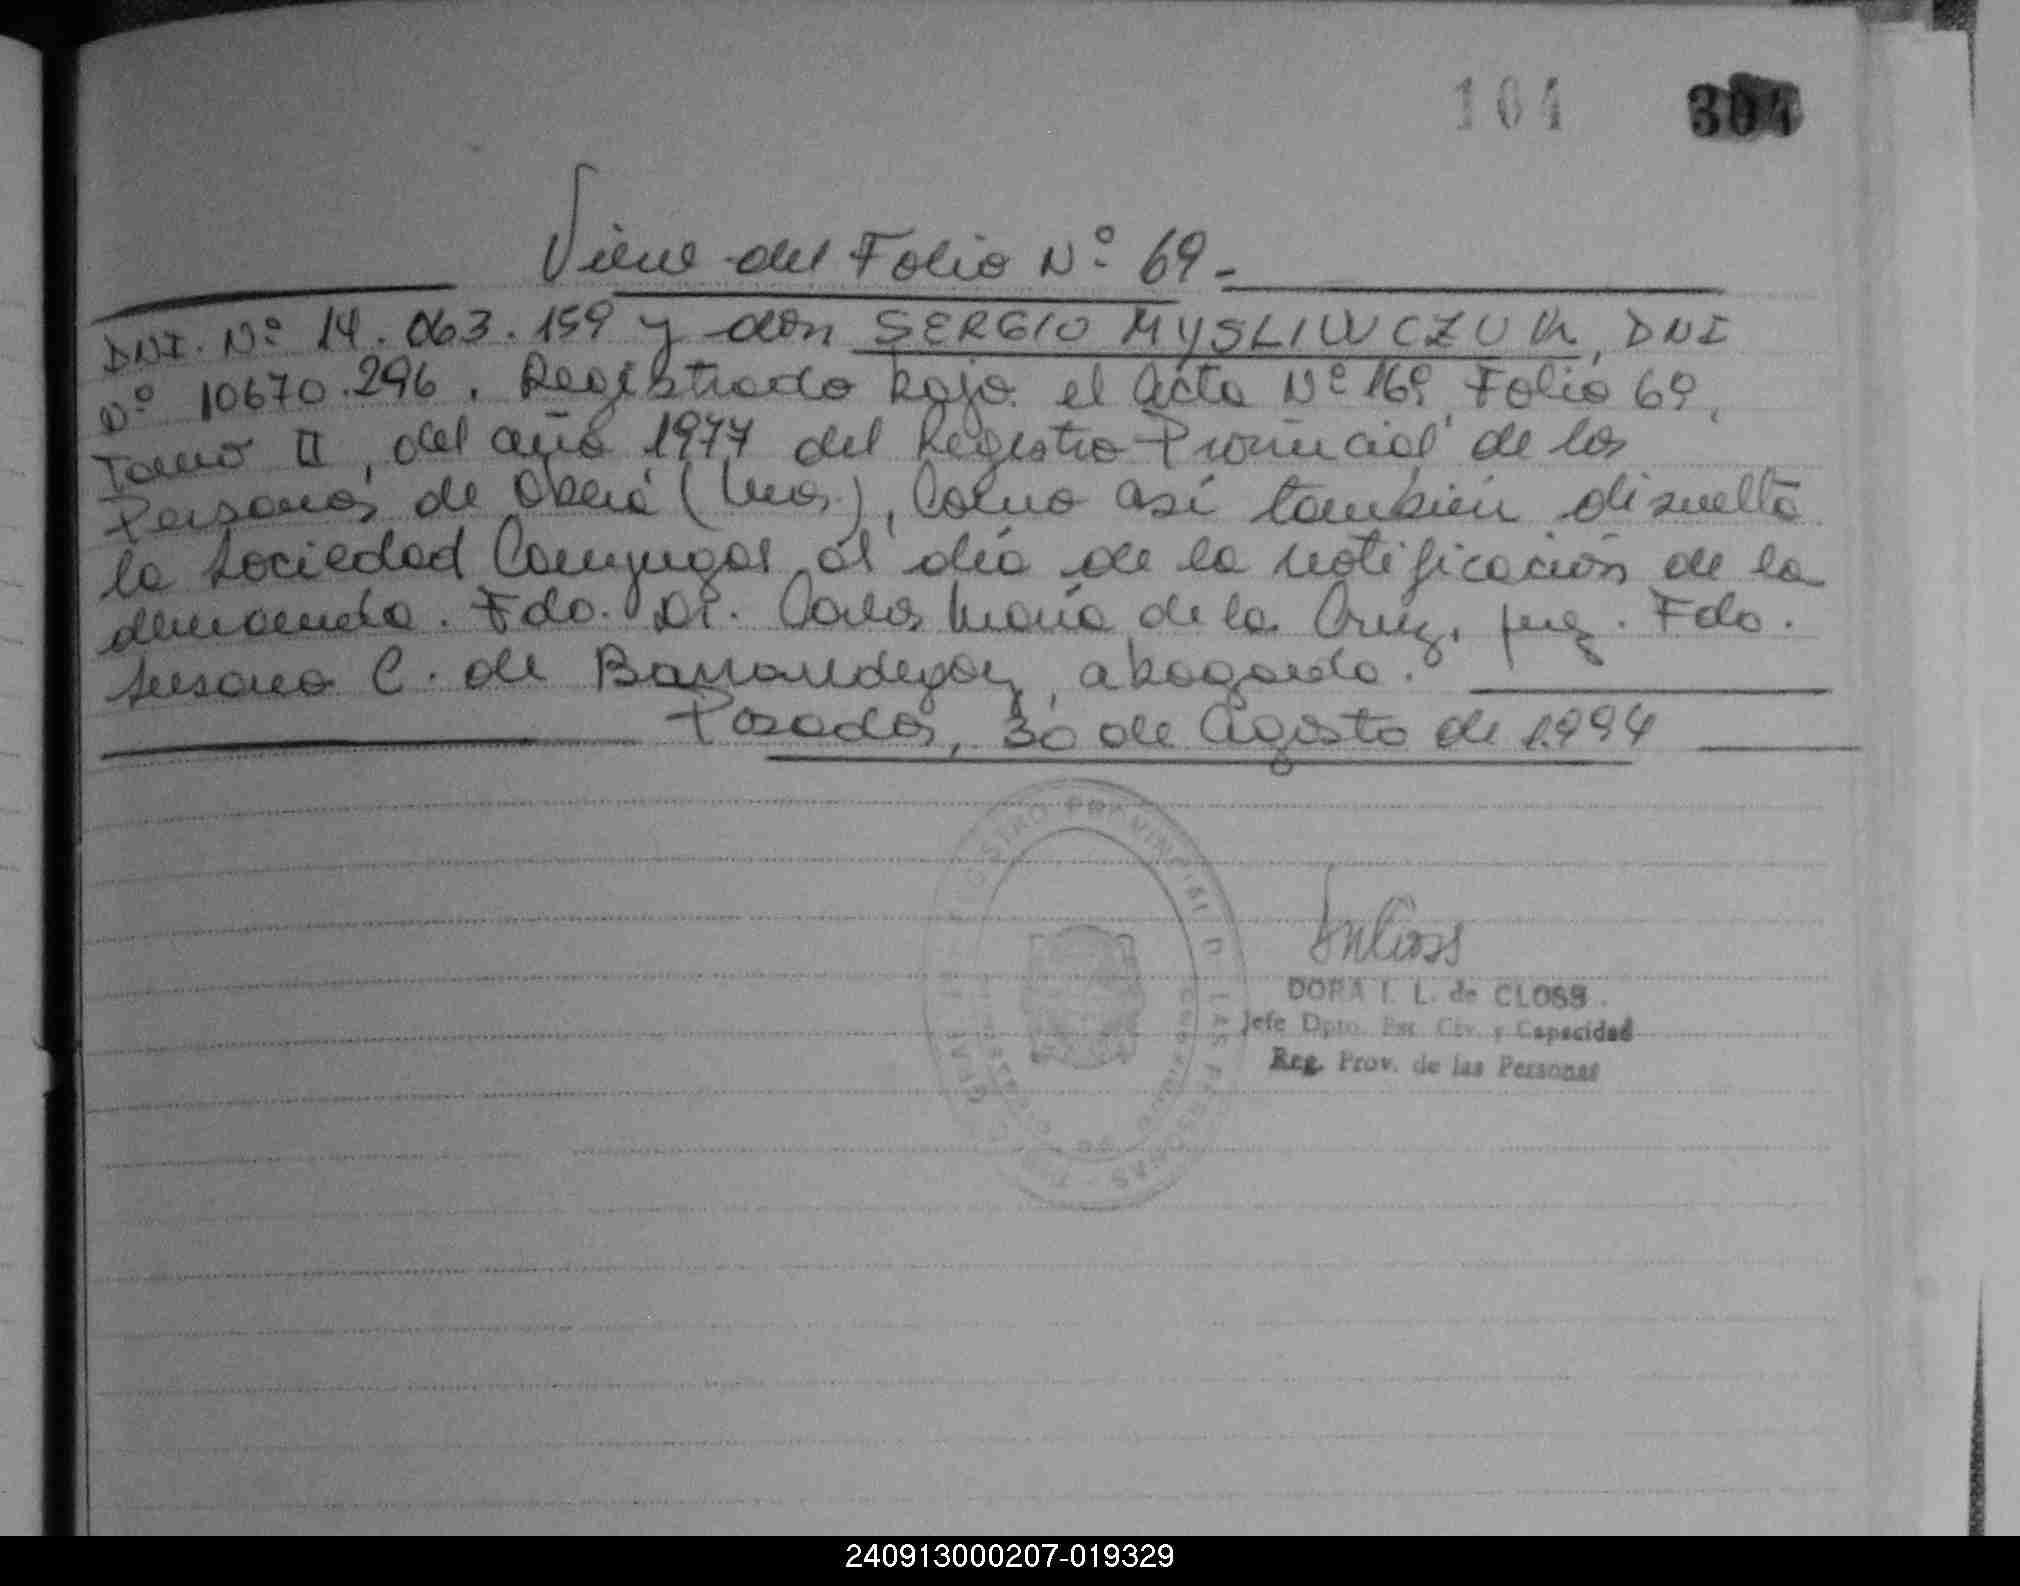 104 304
Viene del Folio Nº 69-
DNI. Nº 14.063.159 y don SERGIO MYSLIWCZUK, DNI
Nº 10670.296. Registrado bajo el Acta Nº 169, Folio 69,
Tomo II, del año 1977 del Registro Provincial de las
Personas de Oberá (Mnes.), Como así también disuelta
la Sociedad Conyugal al día de la notificación de la
demanda. Fdo. Dr. Carlos María de la Cruz, juez. Fdo.
Susana C. de Barrandeguy, abogada.
Posadas, 30 de Agosto de 1.994
REGISTRO PROVINCIAL DE LAS PERSONAS
DORA I. L. de CLOSS
Jefe Dpto. Est. Civ. y Capacidad
Reg. Prov. de las Personas
240913000207-019329